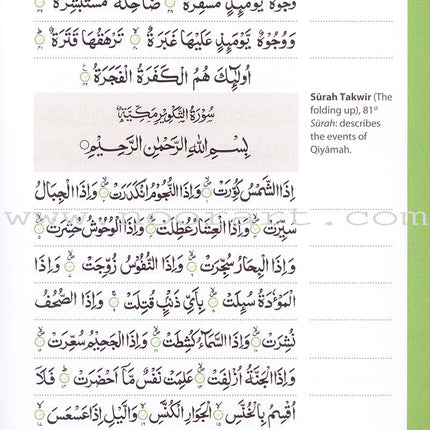 وُجُوْهٌ يَّوْمَىِٕذٍ مُّسْفِرَةٌ ضَاحِكَةٌ مُّسْتَبْشِرَةٌ
وَوُجُوْهٌ يَّوْمَىِٕذٍ عَلَيْهَا غَبَرَةٌ تَرْهَقُهَا قَتَرَةٌ
اُولٰٓىِٕكَ هُمُ الْكَفَرَةُ الْفَجَرَةُ
سُوْرَةُ التَّكْوِيْرِ مَكِّيَّةٌ
بِسْمِ اللّٰهِ الرَّحْمٰنِ الرَّحِيْمِ
اِذَا الشَّمْسُ كُوِّرَتْ وَاِذَا النُّجُوْمُ انْكَدَرَتْ وَاِذَا الْجِبَالُ
سُيِّرَتْ وَاِذَا الْعِشَارُ عُطِّلَتْ وَاِذَا الْوُحُوْشُ حُشِرَتْ
وَاِذَا الْبِحَارُ سُجِّرَتْ وَاِذَا النُّفُوْسُ زُوِّجَتْ وَاِذَا
الْمَوْءٗدَةُ سُىِٕلَتْ بِاَيِّ ذَنْۢبٍ قُتِلَتْ وَاِذَا الصُّحُفُ
نُشِرَتْ وَاِذَا السَّمَآءُ كُشِطَتْ وَاِذَا الْجَحِيْمُ سُعِّرَتْ
وَاِذَا الْجَنَّةُ اُزْلِفَتْ عَلِمَتْ نَفْسٌ مَّآ اَحْضَرَتْ فَلَآ
اُقْسِمُ بِالْخُنَّسِ الْجَوَارِ الْكُنَّسِ وَالَّيْلِ اِذَا عَسْعَسَ
Sūrah Takwir (The
folding up), 81st
Sūrah: describes
the events of
Qiyāmah.
www.noorart.com